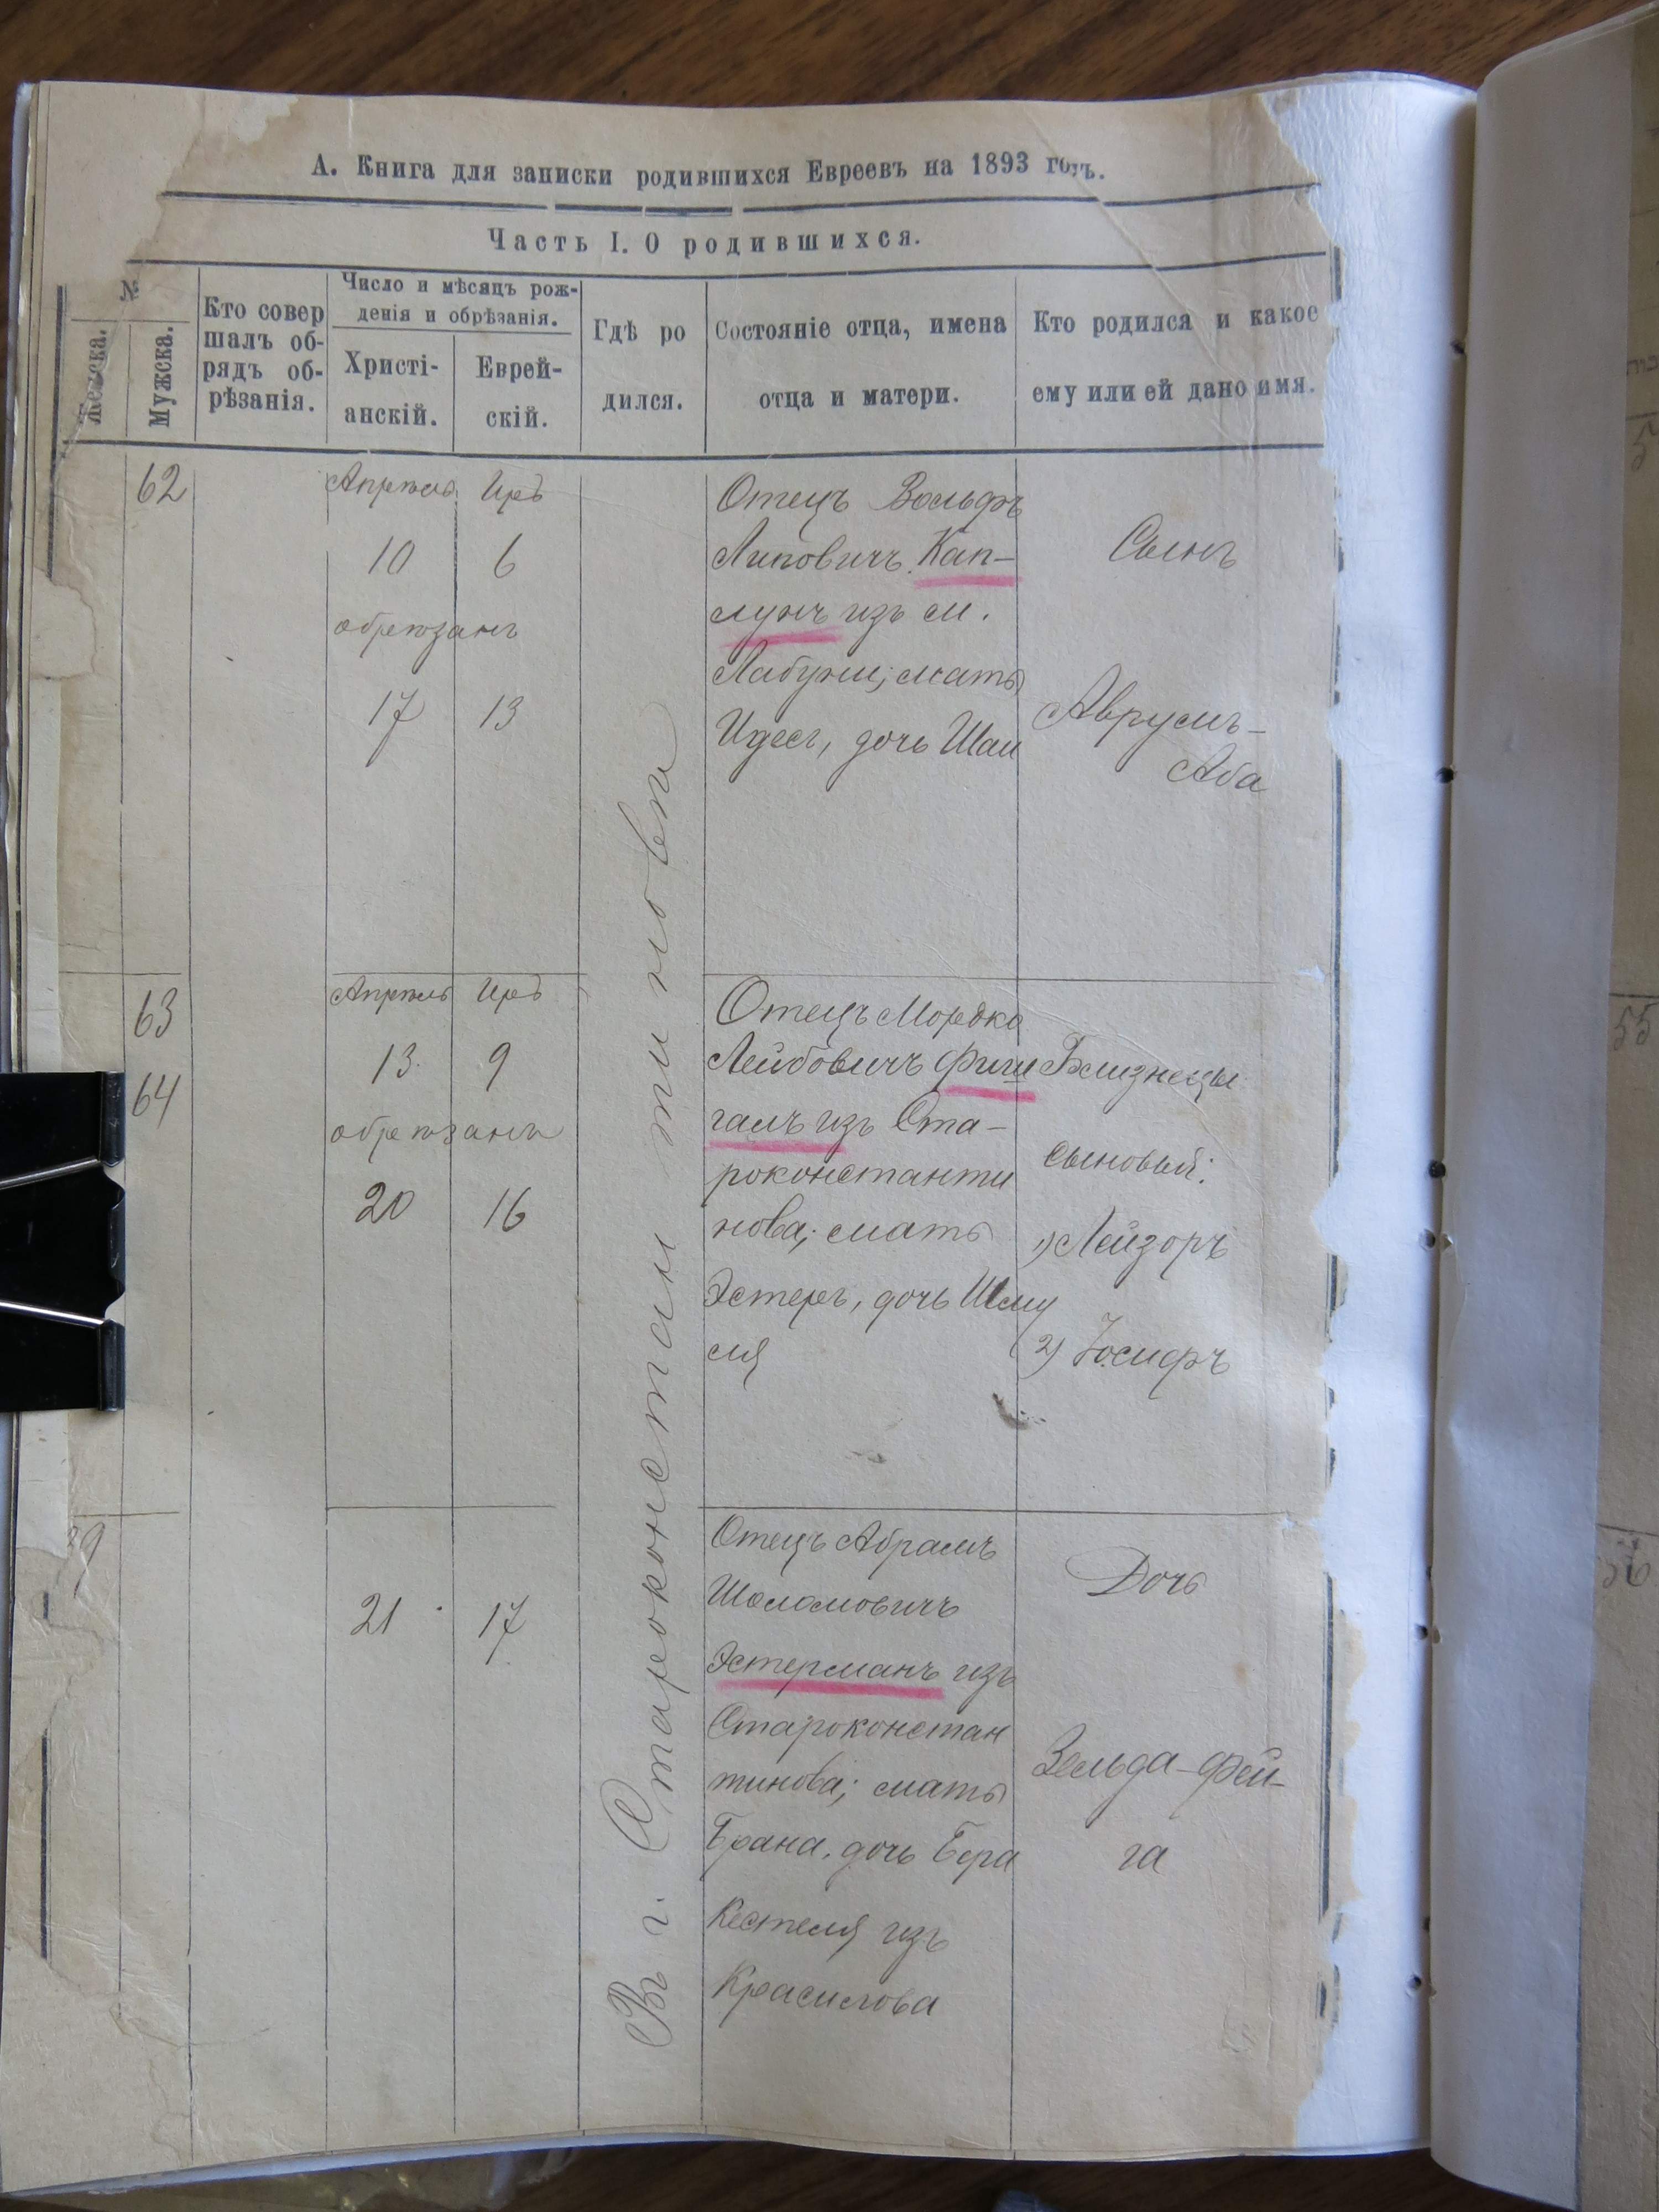 А. Книга для записки родившихся Евреевъ на 1893 годъ.
Часть I. О родившихся.
№
Женска.
Мужска.
Кто совер
шалъ об-
рядъ об-
рѣзанія.
Число и мѣсяцъ рож-
денія и обрѣзанія.
Христі-
анскій.
Еврей-
скій.
Гдѣ ро
дился.
Состояніе отца, имена
отца и матери.
Кто родился и какое
ему или ей дано имя.
62
Апрѣль Іръ
10 6
обрѣзанъ
17 13
Отецъ Вольфъ
Липовичъ Кап-
лунъ изъ м.
Лабуни; мать
Идесъ, дочь Шаи
Сынъ
Аврумъ-
Аба
Въ г. Староконстантиновѣ
63
64
Апрѣль Іръ
13 9
обрѣзаны
20 16
Отецъ Мордко
Лейбовичъ Фиш
галъ изъ Ста-
роконстанти
нова; мать
Эстеръ, дочь Шму
ля
Близнецы
сыновья:
1) Лейзоръ
2) Іосифъ
9
21 17
Отецъ Абрамъ
Шоломовичъ
Эстерманъ изъ
Староконстан
тинова; мать
Брана, дочь Бера
Кестеля изъ
Красилова
Дочь
Зельда-Фей-
га